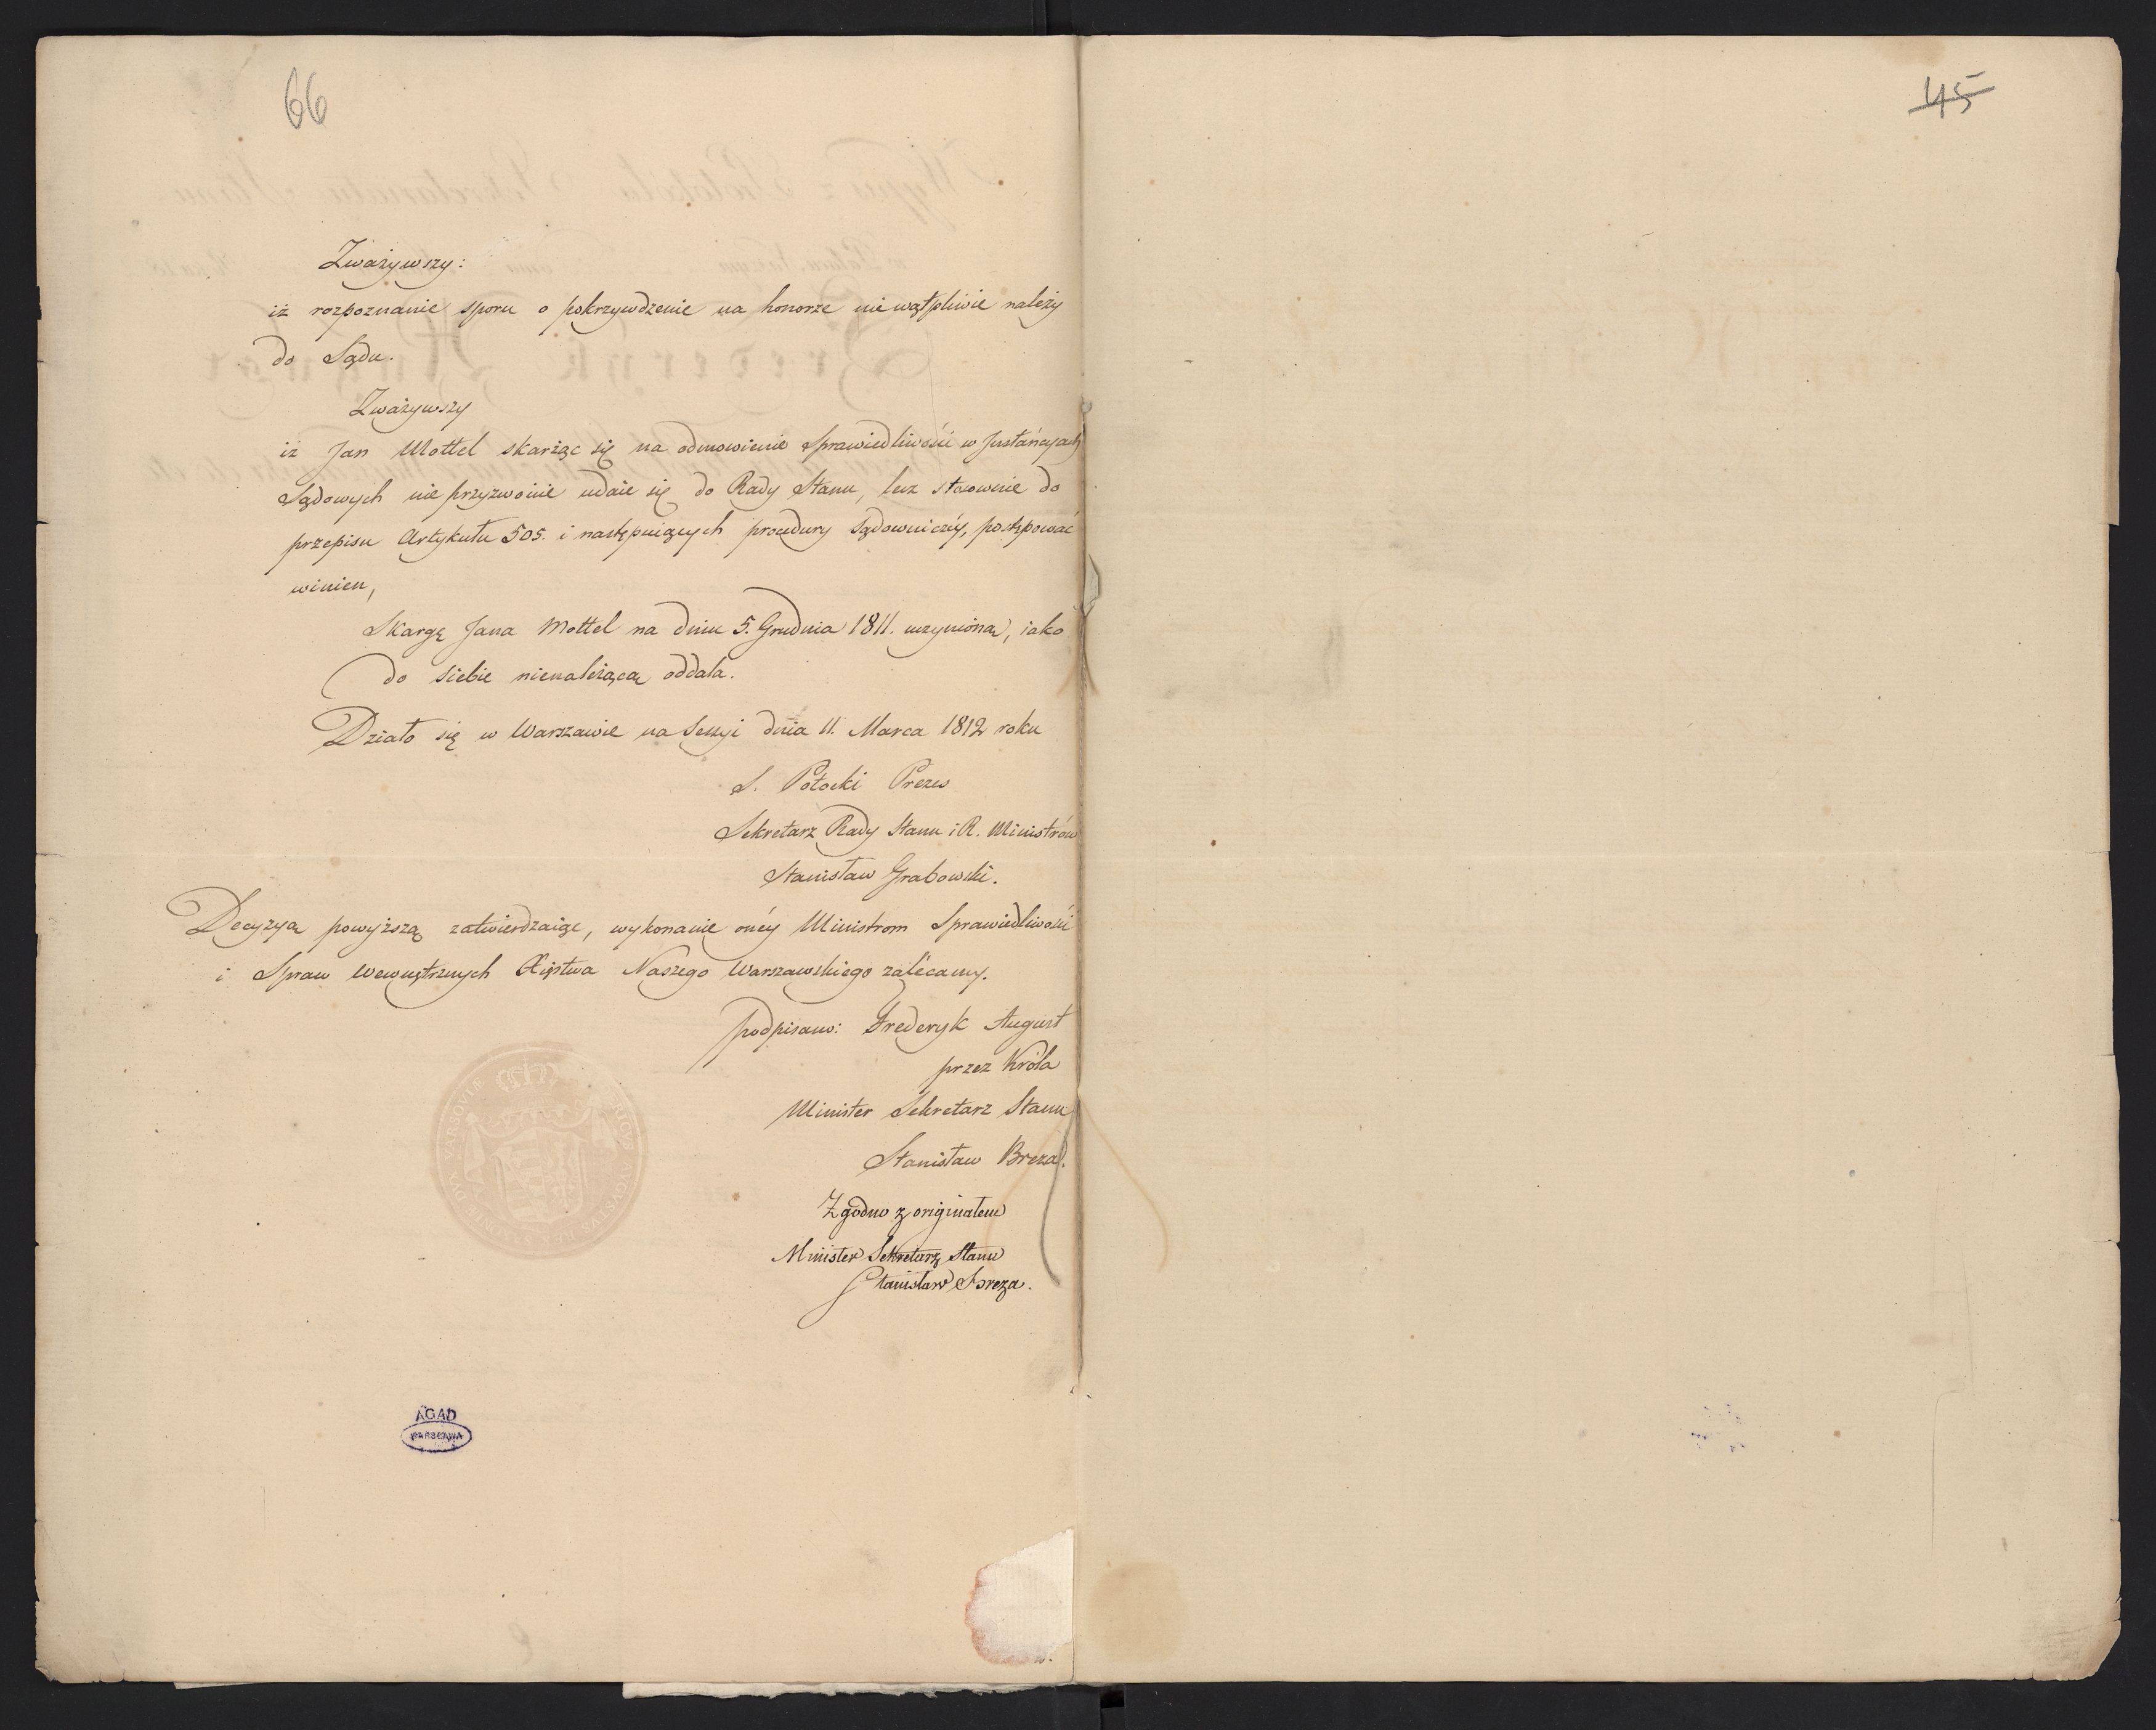 66
Zważywszy:
iż rozpoznanie sporu o pokrzywdzenie na honorze niewątpliwie należy
do Sądu.
Zważywszy
iż Jan Mottel skarżąc się na odmowienie Sprawiedliwości w Justancyach
Sądowych nieprzyzwoicie udaie się do Rady Stanu, lecz stosownie do
przepisu Artykułu 505. i następuiących procedury Sądowniczéy, postępować
winien,
Skargę Jana Mottel na dniu 5. Grudnia 1811. uczynioną, iako
do siebie nienależącą oddala.
Działo się w Warszawie na Sessyi dnia 11. Marca 1812 roku
S. Potocki Prezes
Sekretarz Rady Stanu i R. Ministrów
Stanisław Grabowski.
Decyzyą powyższą zatwierdzaiąc, wykonanie onéy Ministrom Sprawiedliwości
i Spraw Wewnętrznych Xięstwa Naszego Warszawskiego zalécamy.
podpisano: Frederyk August
przez Króla
Minister Sekretarz Stanu
Stanisław Breza.
Zgodno z originałem
Minister Sekretarz Stanu
Stanisław Breza.
AGAD
WARSZAWA
45